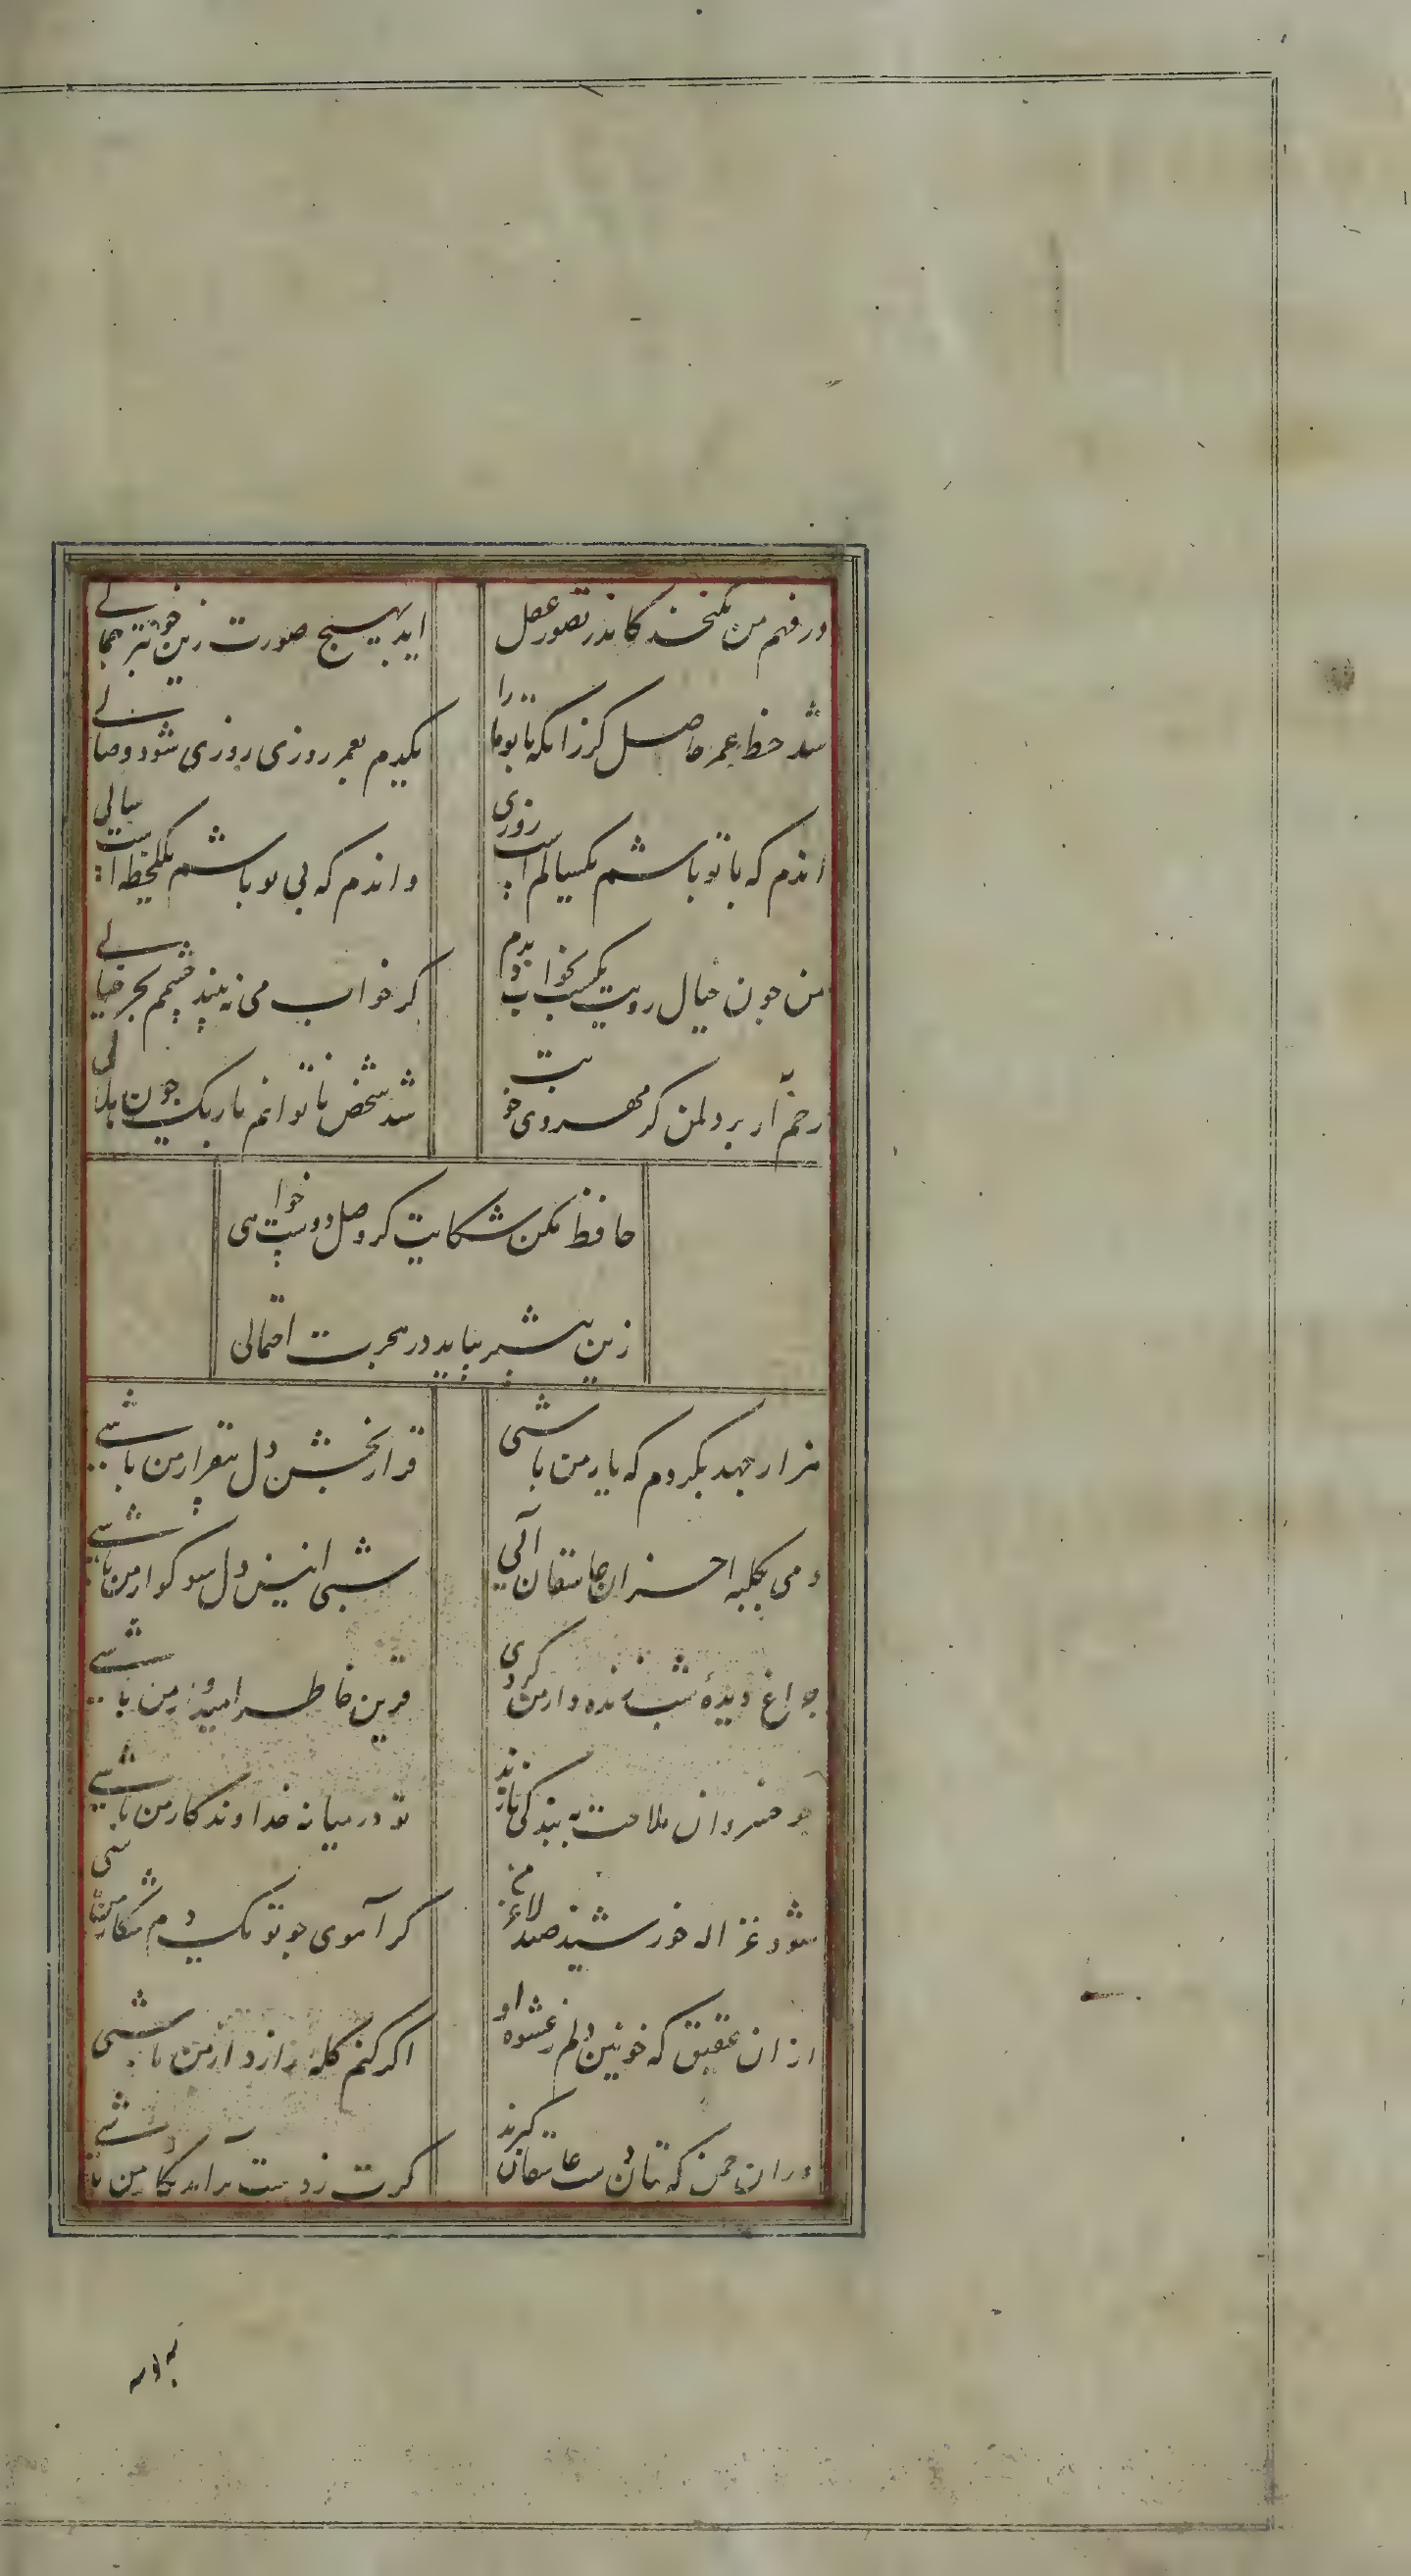 در فهم من نکنجد کاندر تصور عقل
اید بهیچ صورت زین خوبتر جمالی
شد حظ عمر حاصل کر زانکه با تو ما را
یکدم بعمر روزی روزی شود وصالی
اندم که با تو باشم یکسالم است روزی
واندم که بی تو باشم یکلحظه است سالی
من چون خیال رویت یکشب بخواب دیدم
کز خواب می نه بیند چشمم بجز خیالی
رحم آر بر دل من کز مهر روی خوبت
شد شخص ناتوانم باریک چون هلالی
حافظ مکن شکایت کر وصل دوست خواهی
زین بیشتر بباید در هجرت احتمالی
هزار جهد بکردم که یار من باشی
قرار بخش دل بیقرار من باشی
دمی بکلبه احزان عاشقان آئی
شبی انیس دل سوکوار من باشی
چراغ دیدهٔ شب زنده دار من کردی
قرین خاطر امیدوار من باشی
چو خسروان ملاحت به بندکی نازند
تو در میانه خداوندکار من باشی
شود غزاله خورشید صید لاغر من
کر آهوی چو تو یکدم شکار من باشی
از ان عقیق که خونین دلم ز عشوه او
اکر کنم کله راز دار من باشی
در ان چمن که بتان دست عاشقان کیرند
کرت ز دست براید نکار من باشی